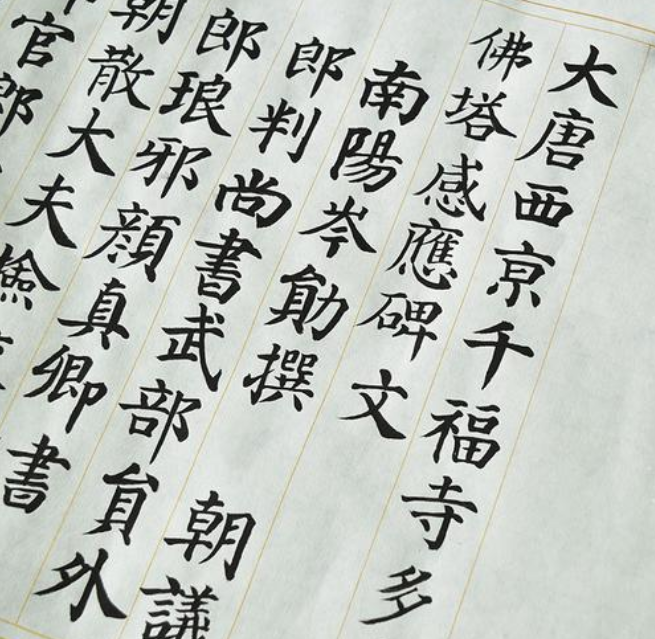 大唐西亰千福寺多
佛塔感應碑文
南陽岑勛撰 朝議
郎判尚書武部貟外
郎琅邪顔真卿書
朝散大夫撿
官郎